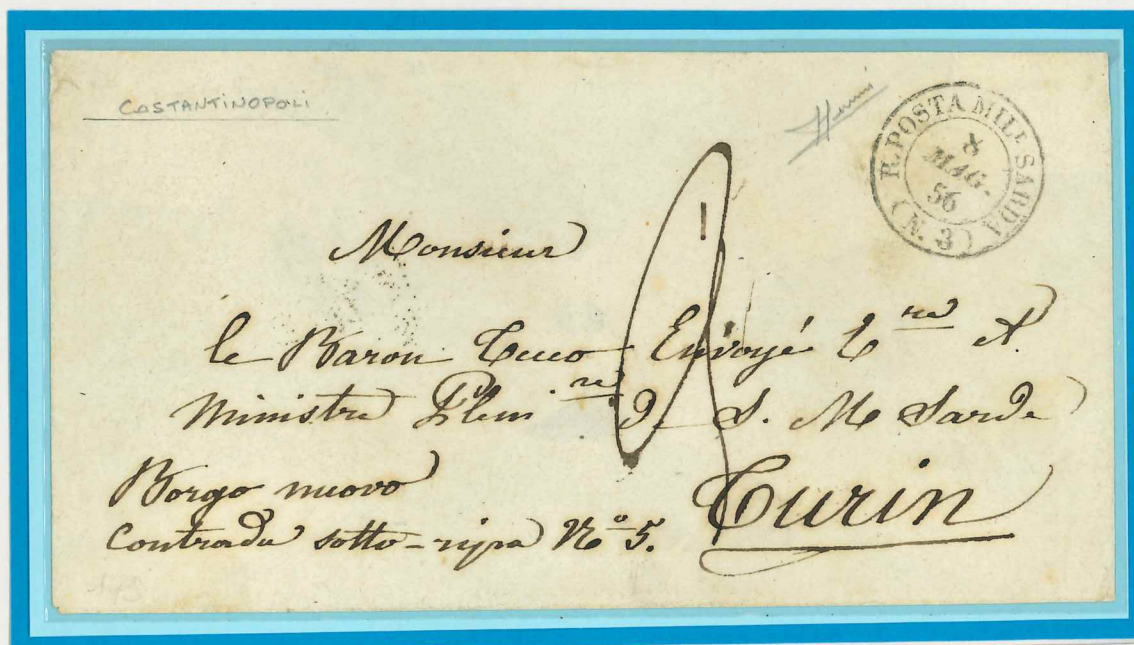 COSTANTINOPOLI
R. POSTA MILL. SARDA
8
MAG.
56
(N. 3)
Monsieur
le Baron Tecco Envoyé E re et
Ministre Pleni re de S. M. Sarde
Turin
Borgo nuovo
Contrada sotto-ripa No 5.